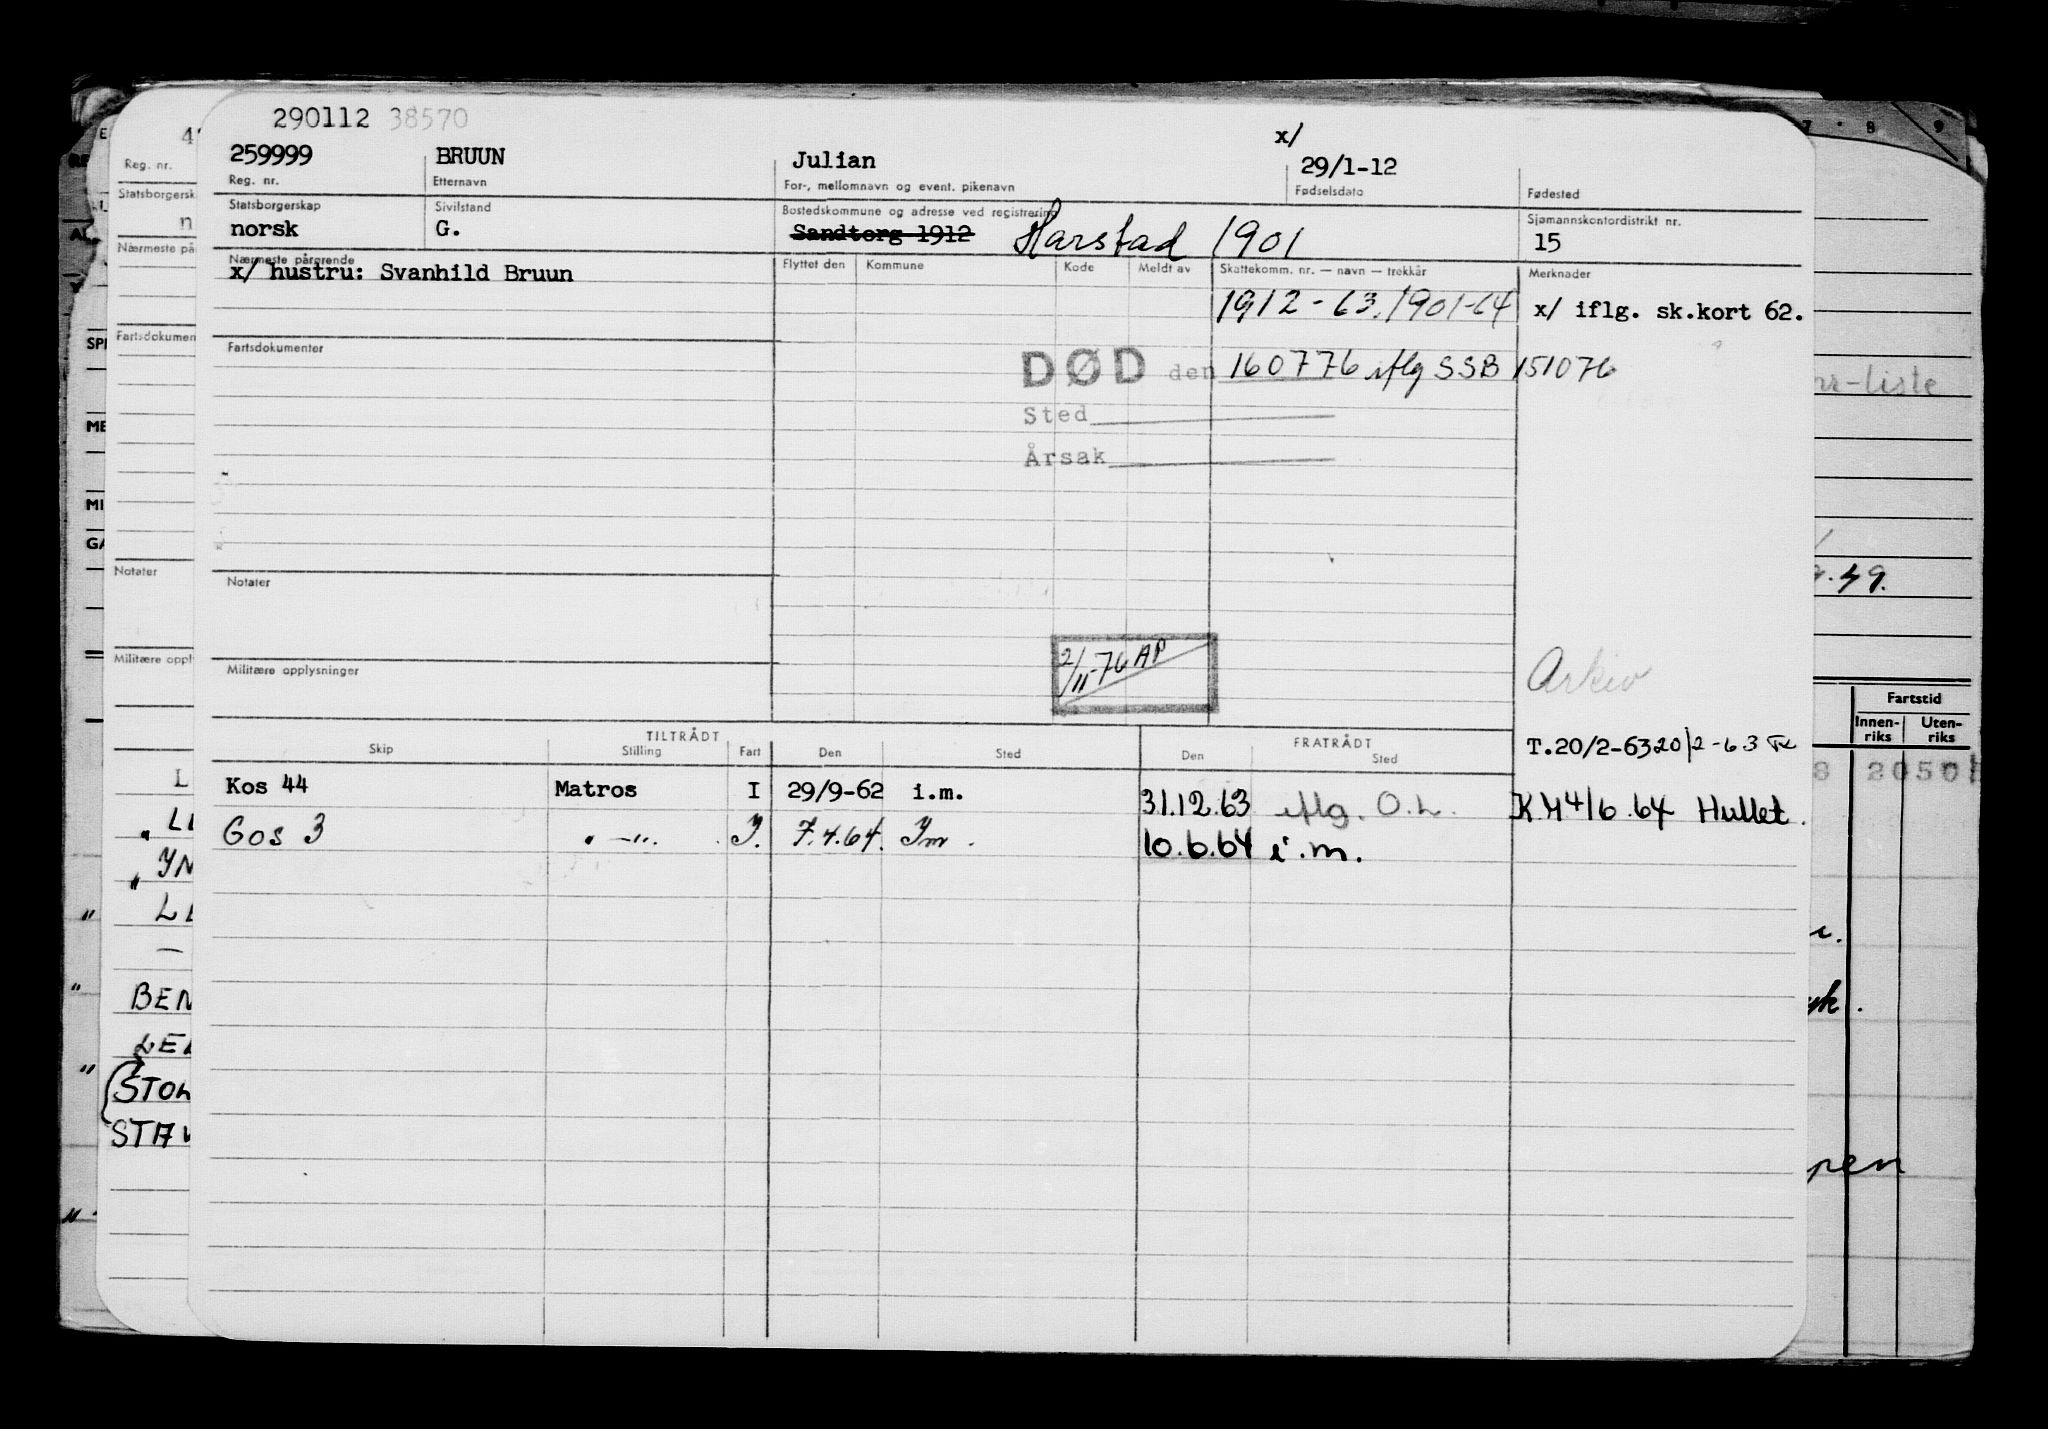 290112 38570
259999 BRUUN Julian x/ 29/1-12
Reg. nr. Etternavn For-, mellomnavn og event. pikenavn Fødselsdato Fødested
Statsborgerskap Sivilstand Bostedskommune og adresse ved registrering Sjømannskontordistrikt nr.
norsk G. Sandtorg 1912 Harstad 1901 15
Nærmeste pårørende Flyttet den Kommune Kode Meldt av Skattekomm. nr. — navn — trekkår Merknader
x/ hustru: Svanhild Bruun
1912-63. 1901-64 x/ iflg. sk.kort 62.
Fartsdokumenter
DØD den 160776 iflg SSB 151076
Sted
Årsak
Notater
2/11-76 AP
Militære opplysninger
Arkiv
TILTRÅDT FRATRÅDT
Skip Stilling Fart Den Sted Den Sted
T.20/2-63 20/2-63
Kos 44 Matros I 29/9-62 i.m. 31.12.63 iflg. O.L. K.M 4/6.64 Hullet.
Gos 3 " —". I. 7.4.64. Im. 10.6.64 i.m.
Reg. nr.
Notater
Fartstid
Innen-
riks
Uten-
riks